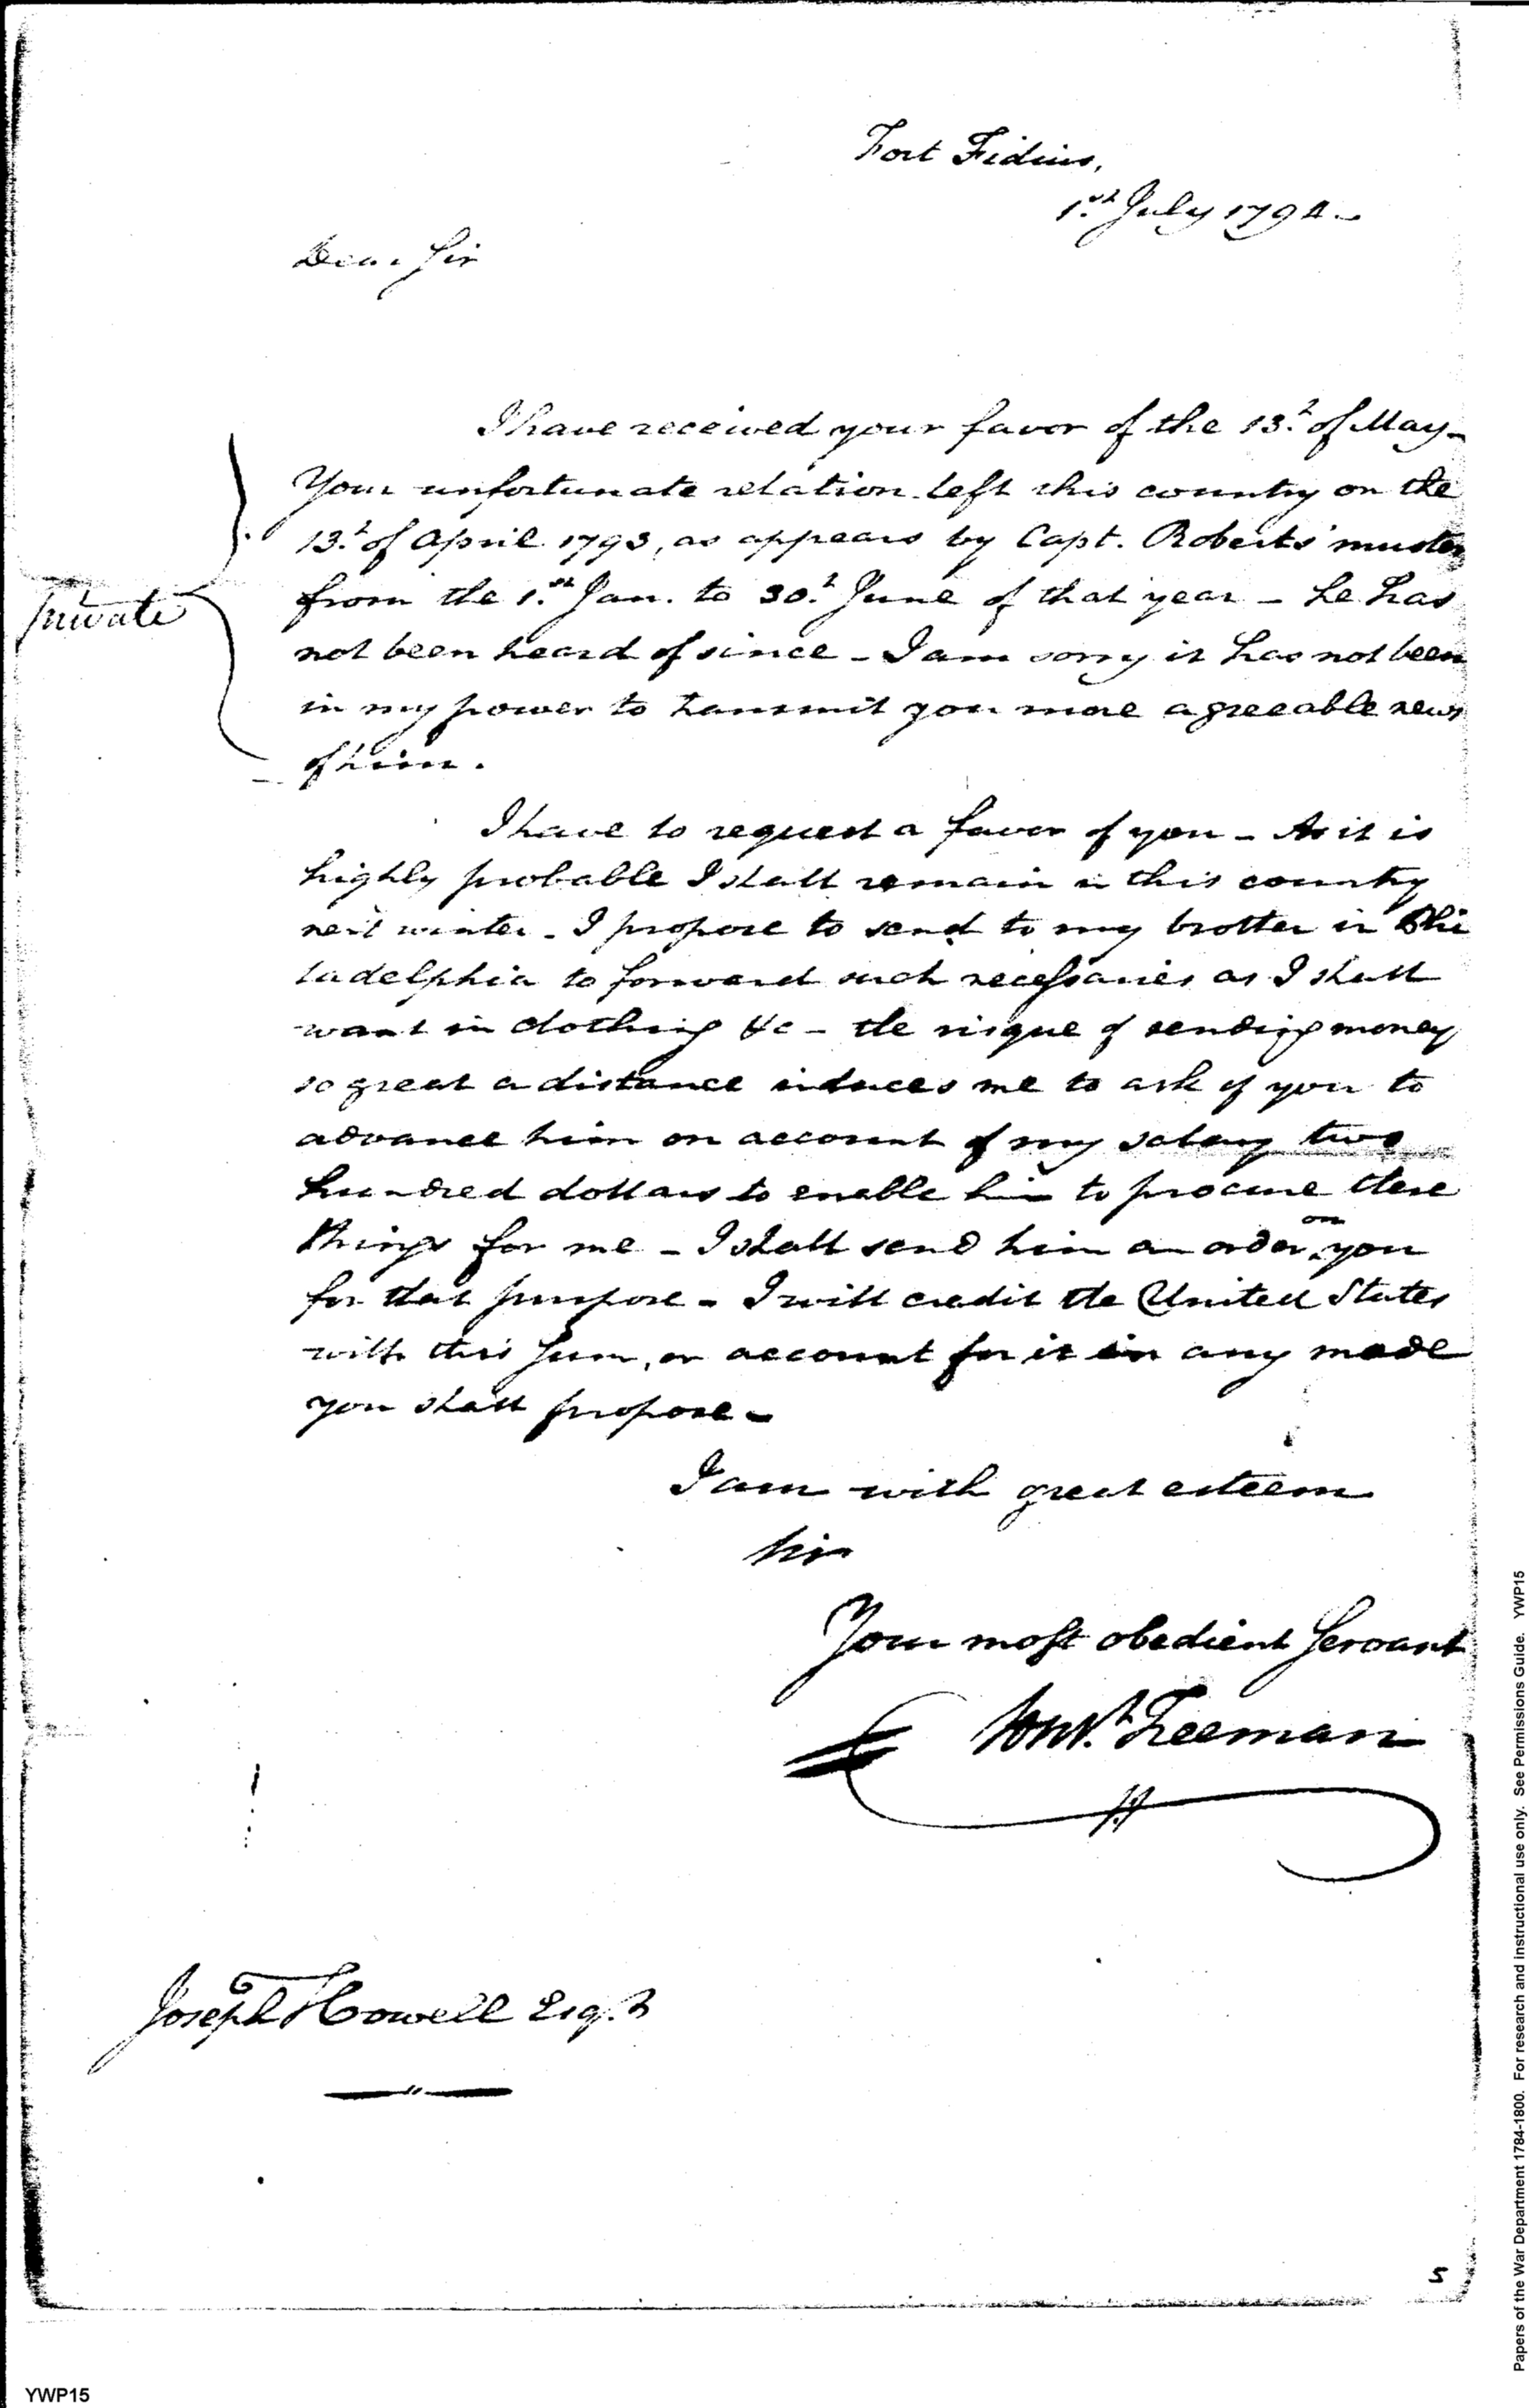 Fort Fidius,
1st July 1794.
Dear Sir
I have received your favor of the 13.t of May -
Your unfortunate relation left this country on the
13.t of April 1793, as appears by Capt. Roberts' muster
from the 1.st Jan. to 30.t June of that year - he has
Private
not been heard of since - I am sorry it has not been
in my power to transmit you more agreeable news
of him.
I have to request a favor of you - As it is
highly probable I shall remain in this country
next winter - I propose to send to my brother in Phi
ladelphia to forward such necessaries as I shall
want in clothing &c - the risque of sending money
so great a distance induces me to ask of you to
advance him on account of my salary two
hundred dollars to enable him to procure these
things for me - I shall send him an order on you
for that purpose - I will credit the United States
with this sum, or account for it in any mode
you shall propose -
I am with great esteem
Sir
Your most obedient Servant
Const. Freeman
Joseph Howell Esq.r
5
YWP15
Papers of the War Department 1784-1800. For research and instructional use only. See Permissions Guide. YWP15